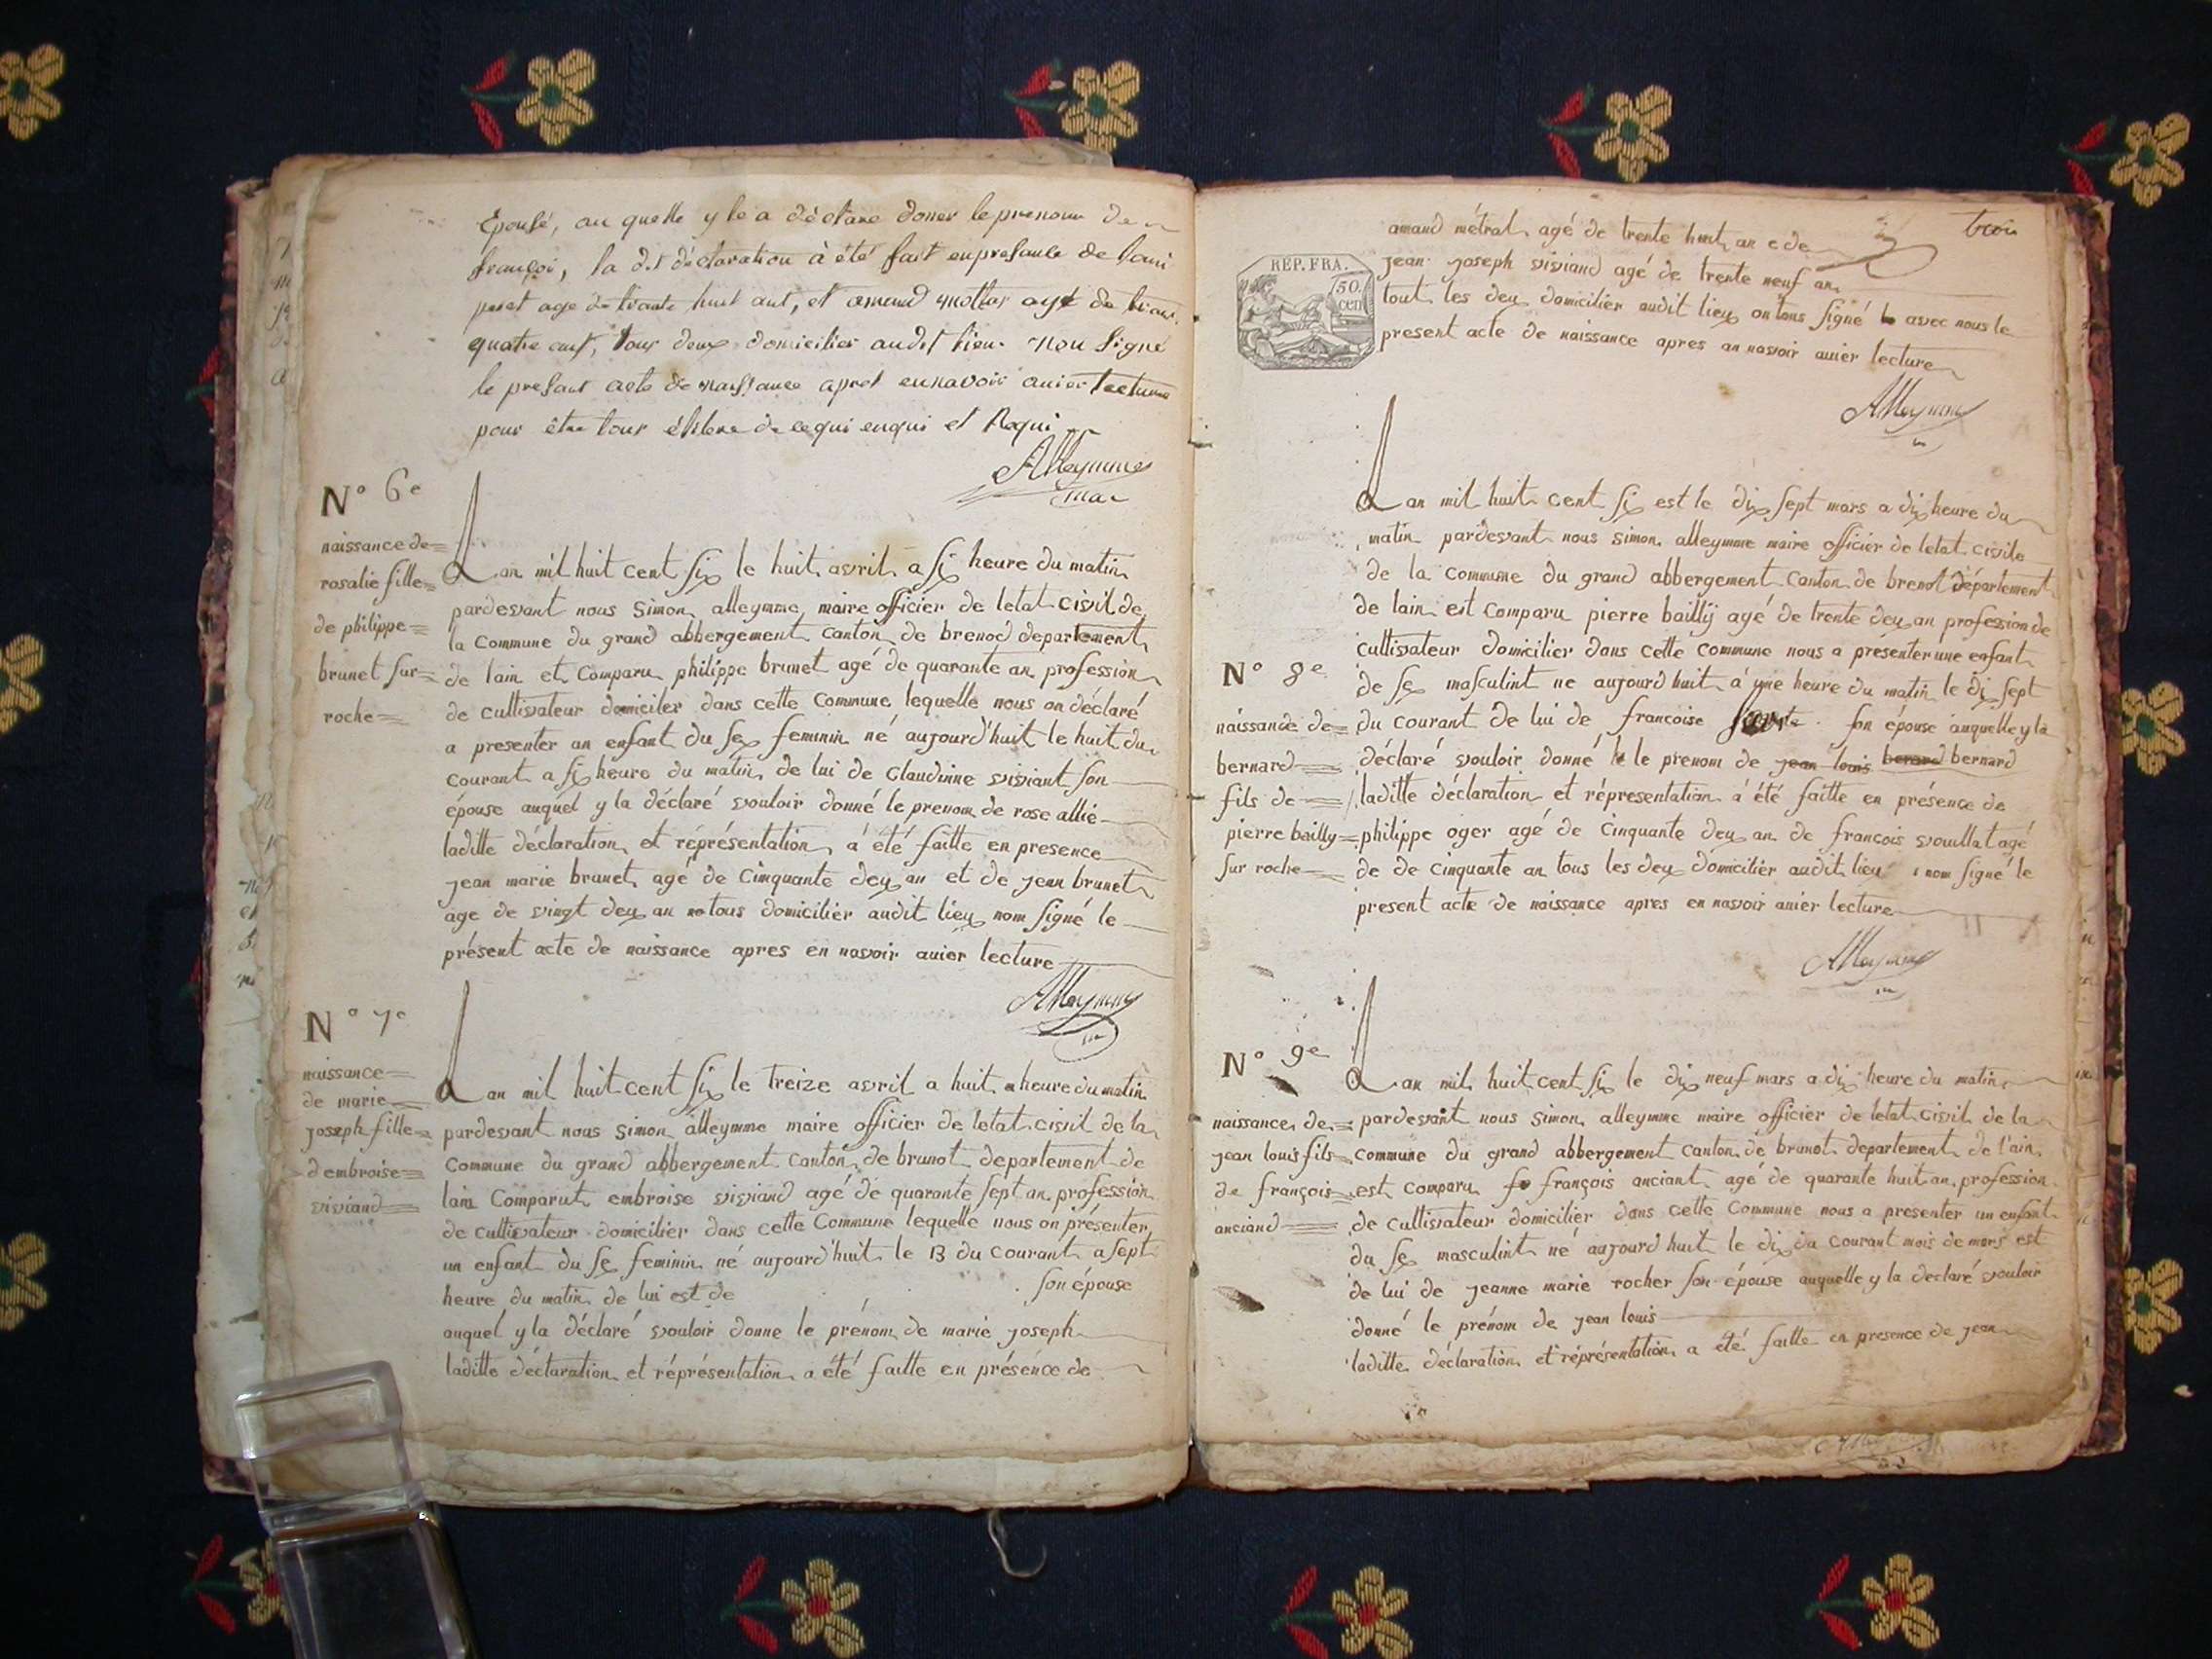 Epousé, au quelle y le a déclare doner le prenom de
françoi, la dit déclaration à été fait en presance de
age de trante huit ant, et amend mottar agé de
quatre ant, tous deux domicilier audit lieu non Signé
le presant acte de naissance apret en navoir auier lecture
pour être de ce qui
Alleymme
mar
N° 6e
naissance de
rosalie fille
de philippe
brunet sur
roche
Lan mil huit cent six le huit avril a six heure du matin
pardevant nous simon alleymme maire officier de letat civil de
la Commune du grand abbergement canton de brenod departement
de lain et Comparu philippe brunet agé de quarante an profession
de cultivateur domicilier dans cette Commune lequelle nous on déclaré
a presenter an enfant du sex feminin né aujourd'huit le huit du
courant a six heure du matin de lui de Claudinne viviant son
épouse auquel y la déclaré vouloir donné le prenom de rose allie
laditte déclaration et réprésentation à été faitte en presence
jean marie brunet agé de Cinquante deux an et de jean brunet
age de vingt deux an tous domicilier audit lieu nom signé le
présent acte de naissance apres en navoir auier lecture
Alleymme
N° 7e
naissance
de marie
joseph fille
dembroise
viviand
Lan mil huit cent six le treize avril a huit heure du matin
pardevant nous simon alleymme maire officier de letat civil de la
Commune du grand abbergement canton de brunot departement de
lain Comparut embroise viviand agé de quarante sept an profession
de cultivateur domicilier dans cette Commune lequelle nous on présenter
un enfant du sex feminin né aujourd'huit le 13 du courant a sept
heure du matin de lui est de son épouse
auquel y la déclaré vouloir donne le prénom de marie joseph
laditte déclaration et réprésentation a été faitte en présence de
trois
REP. FRA.
50.
cen
amand métral agé de trente huit an e de
jean joseph viviand agé de trente neuf an
tout les deux domicilier audit lieux on tous signé avec nous le
present acte de naissance apres an navoir auier lecture
Alleymme
Lan mil huit cent six est le dix sept mars a dix heure du
matin pardevant nous simon alleymme maire officier de letat civile
de la Commune du grand abbergement Canton de brenot département
de lain est Comparu pierre baillÿ agé de trente deux an profession de
cultivateur domicilier dans cette commune nous a presenter une enfant
N° 8e
de sex masculint ne aujourd huit à une heure du matin le dix sept
naissance de
bernard
fils de
pierre bailly
sur roche
du courant de lui de francoise son épouse auquelle y la
déclaré vouloir donné le prenom de jean louis berard bernard
laditte déclaration et réprésentation à été faitte en présence de
philippe oger agé de Cinquante deux an de françois vouillat agé
de de cinquante an tous les deux domicilier audit lieu nom signé le
present acte de naissance apres en navoir auier lecture
Alleymme
N° 9e
naissance de
jean louis fils
de françois
anciand
Lan mil huit cent six le dix neuf mars a dix heure du matin
pardevant nous simon alleymme maire officier de letat civil de la
commune du grand abbergement canton de brunot departement de l'ain
est comparu françois anciant agé de quarante huit an profession
de cultivateur domicilier dans cette Commune nous a presenter un enfant
du sex masculint né aujourd huit le dix du courant mois de mars est
de lui de jeanne marie rocher son épouse auquelle y la declaré vouloir
donné le prénom de jean louis
laditte déclaration et réprésentation a été faitte en presence de jean